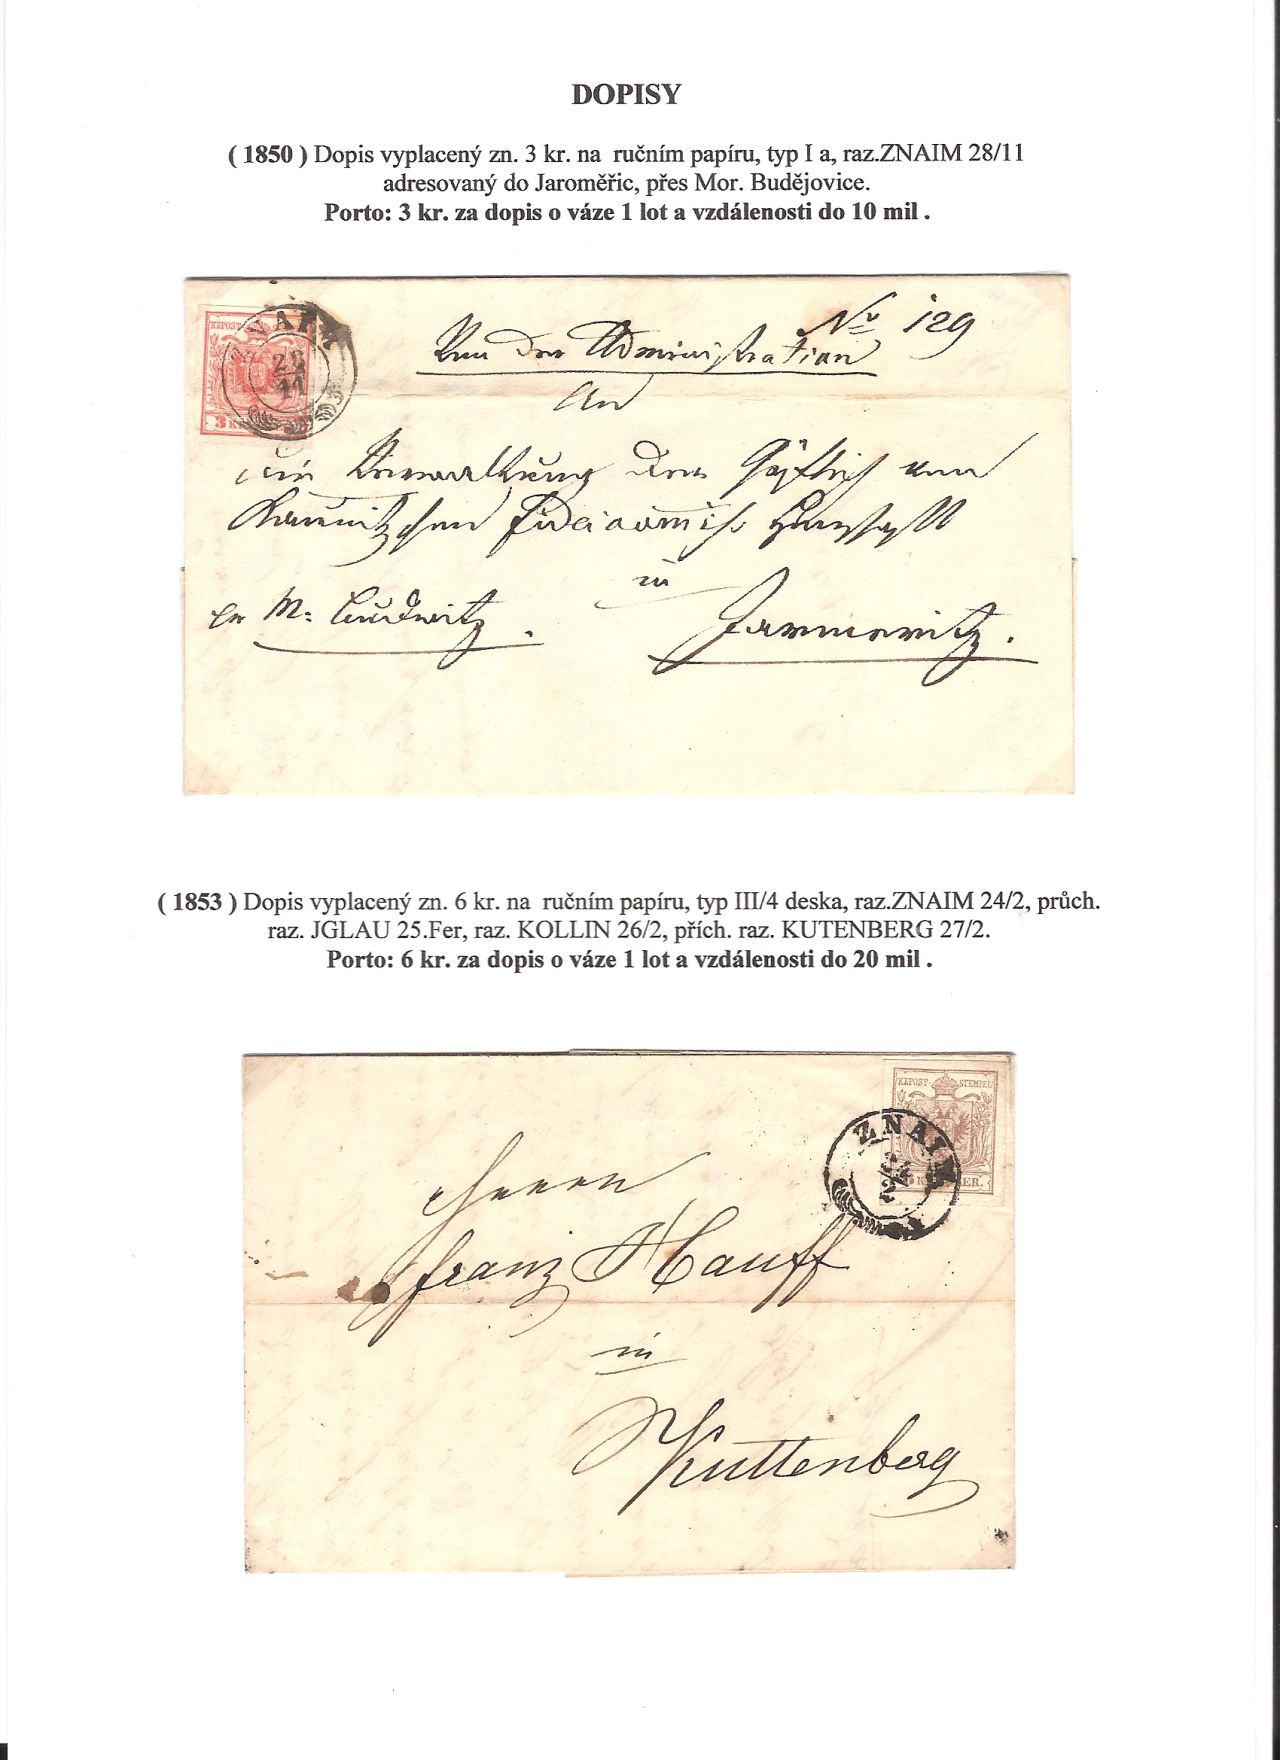 DOPISY
( 1850 ) Dopis vyplacený zn. 3 kr. na ručním papíru, typ I a, raz.ZNAIM 28/11
adresovaný do Jaroměřic, přes Mor. Budějovice.
Porto: 3 kr. za dopis o váze 1 lot a vzdálenosti do 10 mil .
KKPOST
ZNAIM
28
11
3 K
No 129
Von der Administration
An
die Verwaltung der Gräflich von
Kaunitzschen Fideicomiss Herrschaft
in
pr M: Budwitz.
Jarmeritz.
( 1853 ) Dopis vyplacený zn. 6 kr. na ručním papíru, typ III/4 deska, raz.ZNAIM 24/2, průch.
raz. JGLAU 25.Fer, raz. KOLLIN 26/2, přích. raz. KUTENBERG 27/2.
Porto: 6 kr. za dopis o váze 1 lot a vzdálenosti do 20 mil .
KKPOST-STEMPEL
ZNAIM
6 K ER.
Herrn
Franz Hauff
in
Kuttenberg